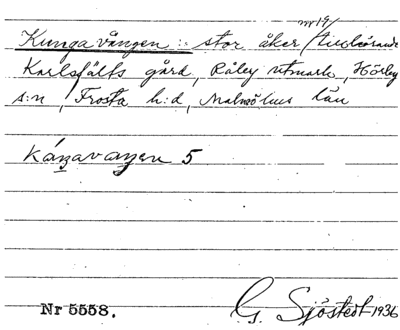 nr 19/
Kungavången :- stor åker tillhörande
Karlsfälts gård, Råby utmark, Hörby
s:n, Frosta h:d, Malmöhus län
kángavangen 5
Nr 5558.
G. Sjöstedt 1936